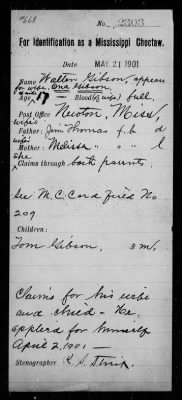 #668
No. 2303
For Identification as a Mississippi Choctaw.
Date MAY 21 1901
Name Walton Gibson, appears
for wife, Ona Gibson.
Age 17 - Blood (of wife) full.
Post Office Newton, Miss.
wife's
Father: Jim Thomas f.b d
wife's
Mother: Melissa " " l
she
Claims through both parents.
See M.C. Card Field No.
209
Children:
Tom Gibson, 3 m.
Claims for his wife
and child - He
applied for himself
April 2, 1901 -
Stenographer R. S. Streit.